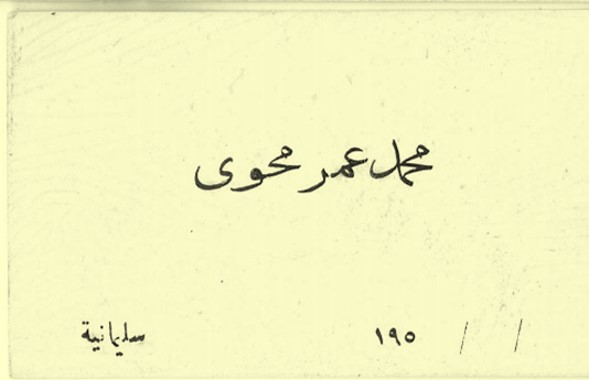 محمد عمر محوى
/ / ١٩٥ سليمانية